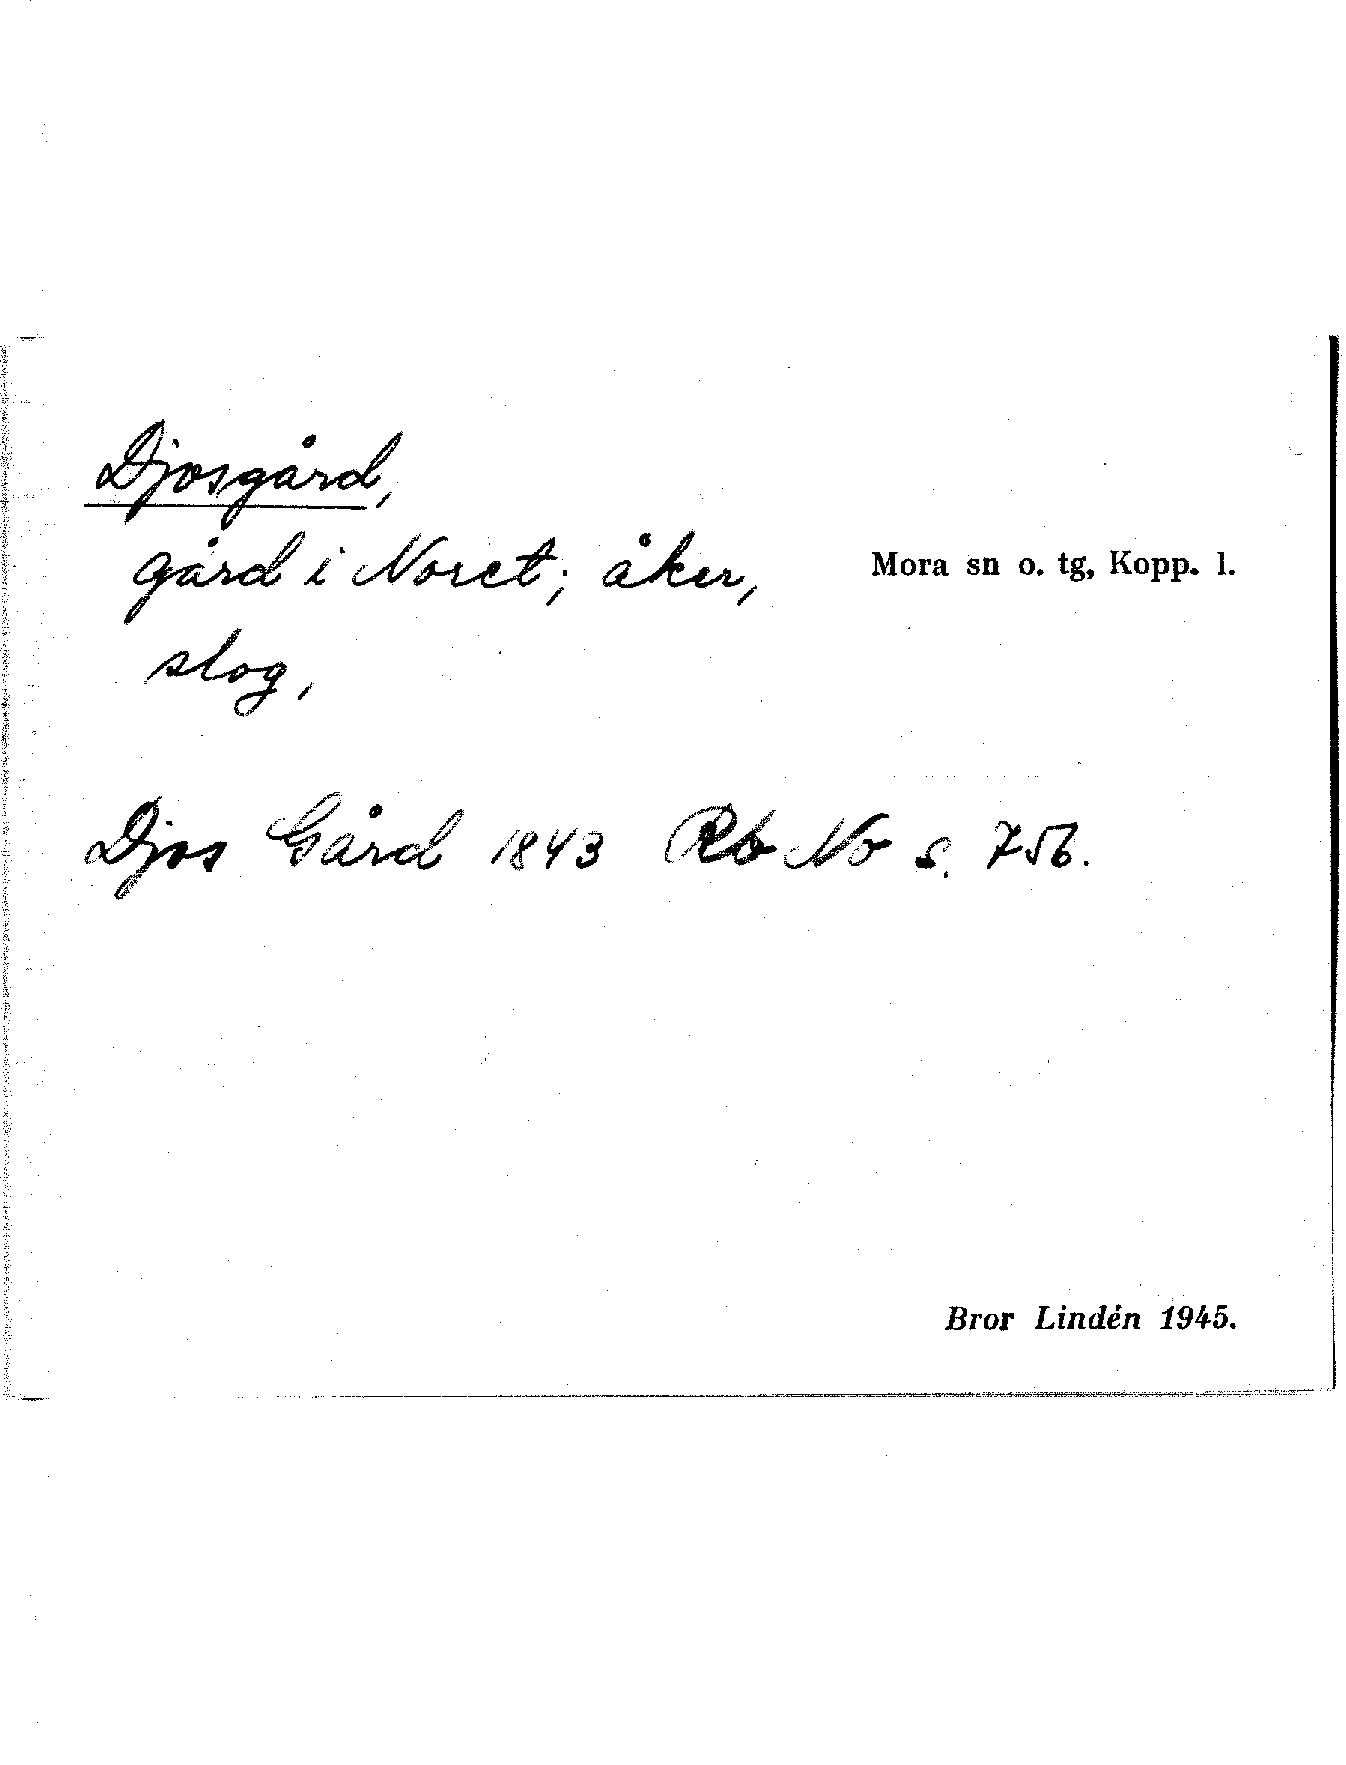 Djosgård,
gård i Noret; åker,
Mora sn o. tg, Kopp. l.
slog,
Djos Gård 1843 Rb No s. 756.
Bror Lindén 1945.